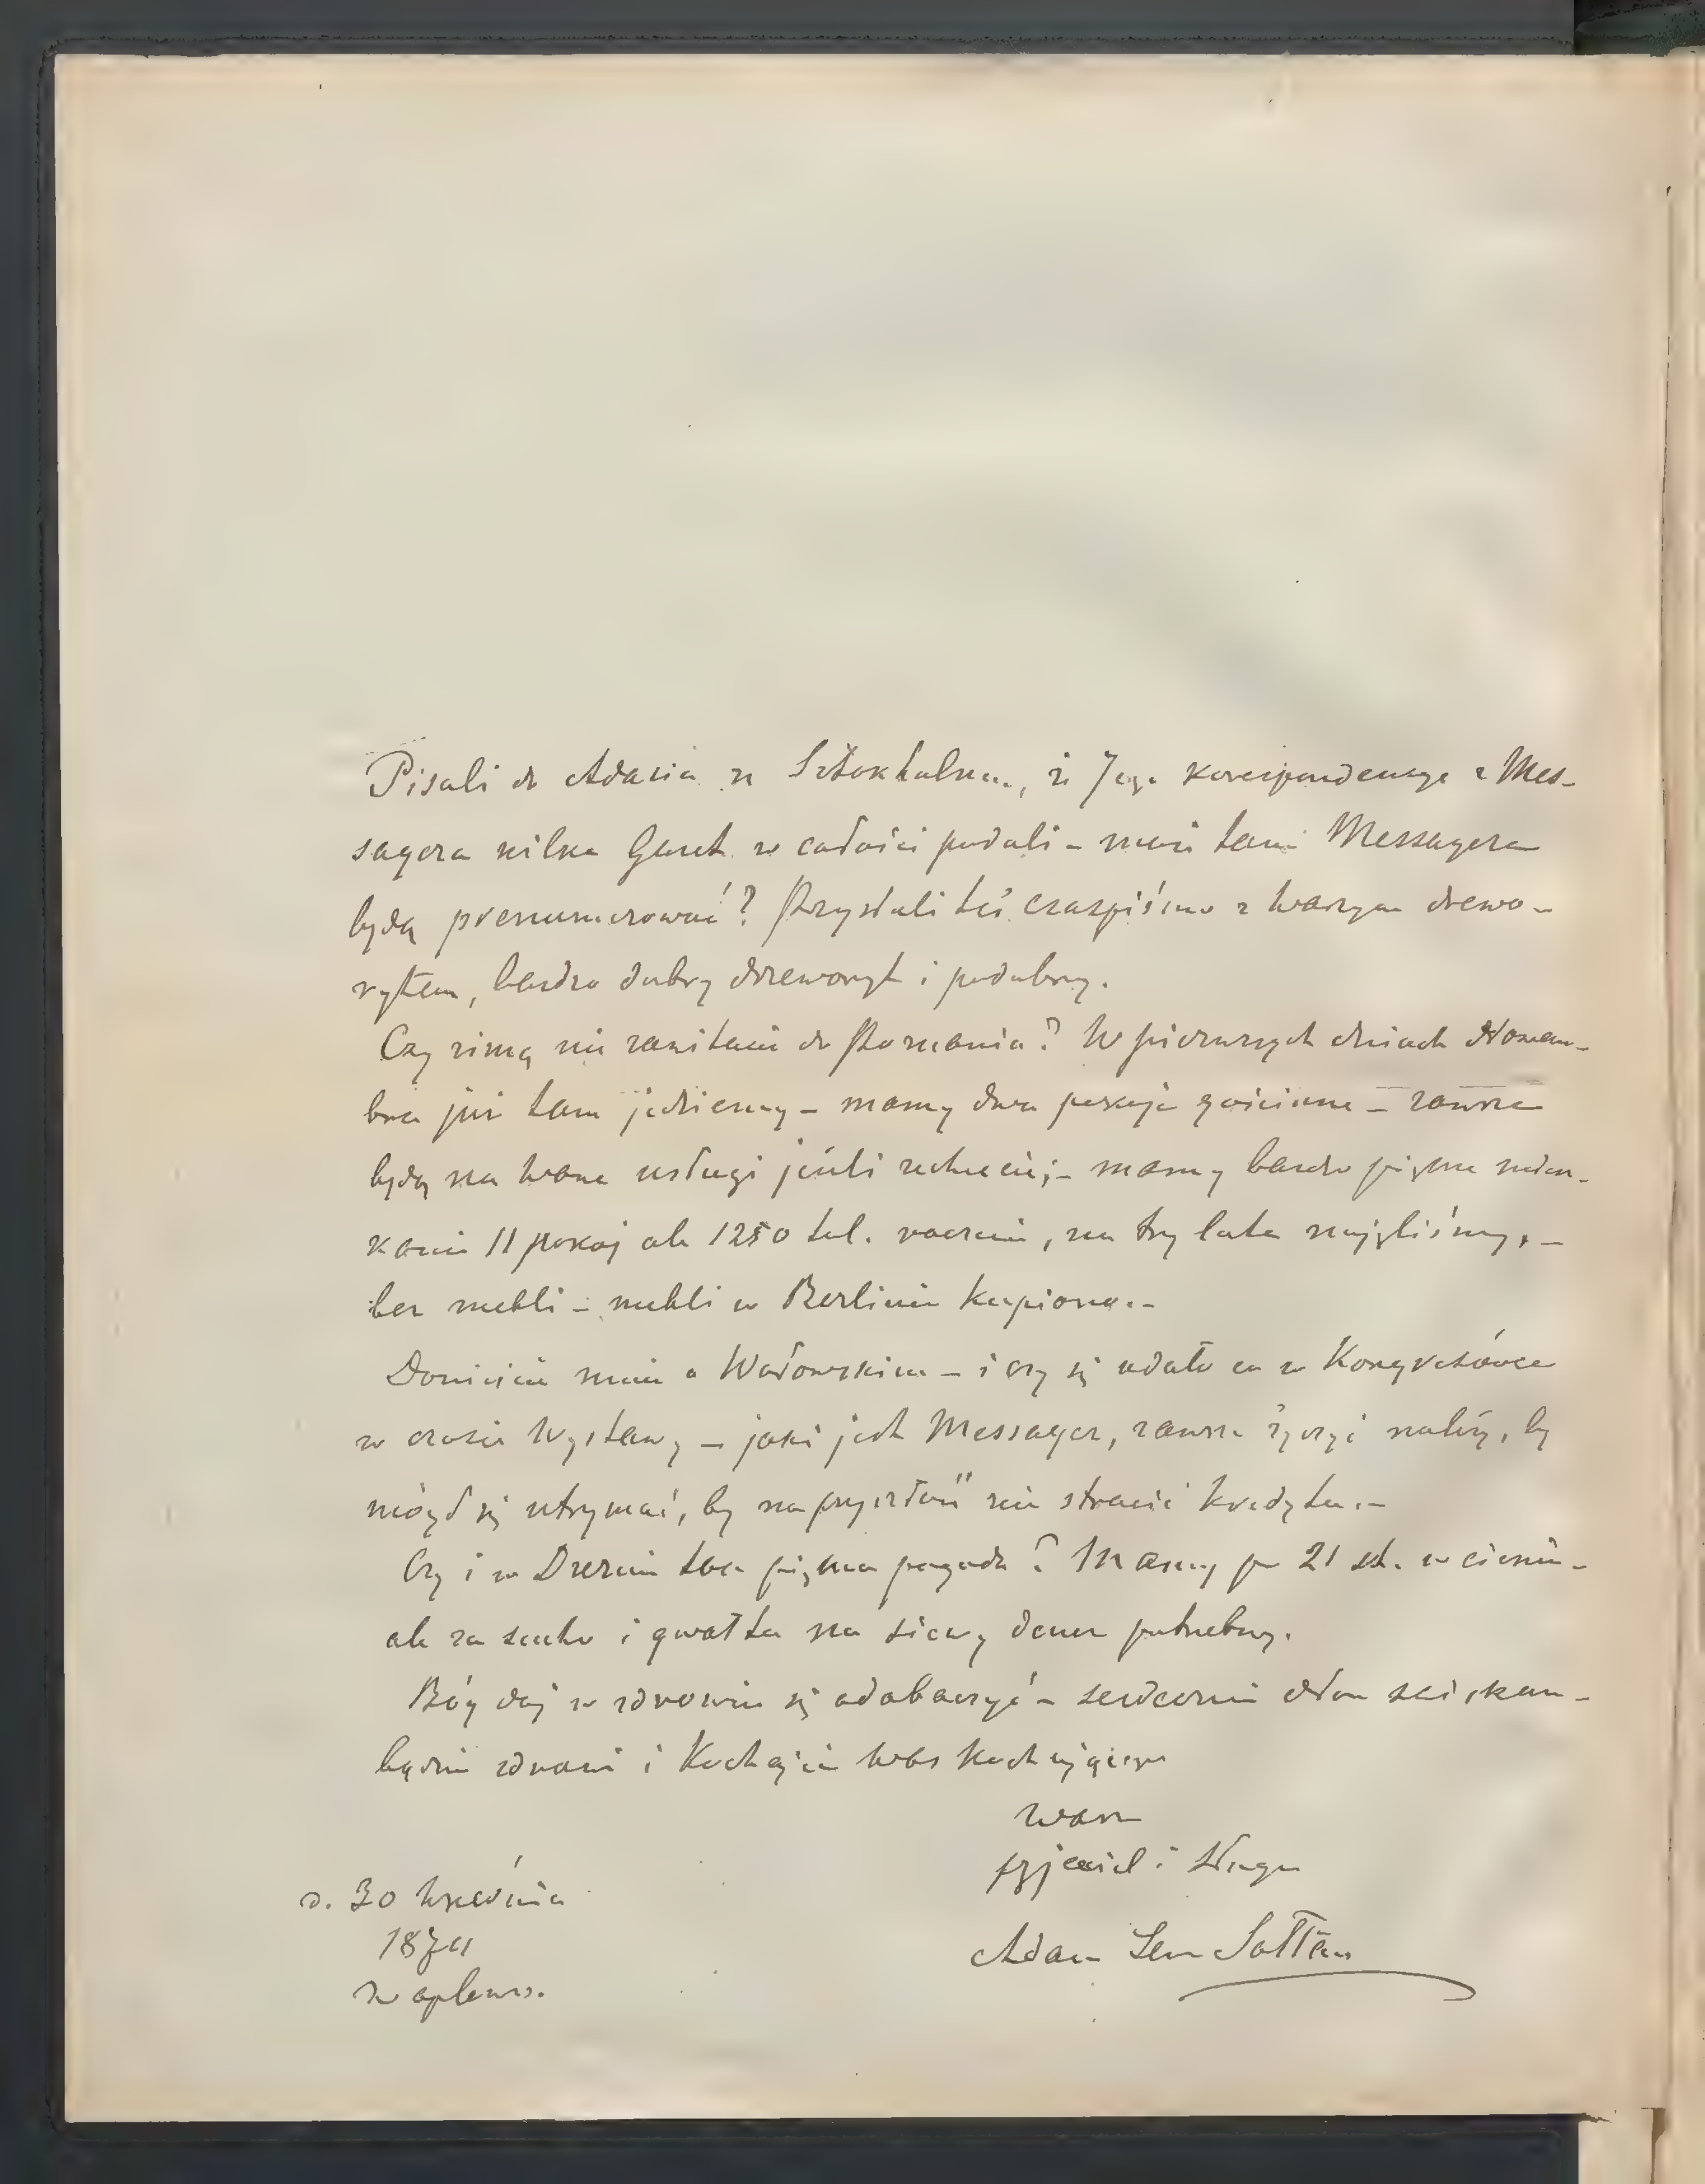 Pisali do Adasia ze Sztokholmu, że Jego korespondencye z Mes-
sagera kilka Gazet w całości podali – może tam Messagera
będą prenumerować? Przysłali też czaspiśmo z waszym drzewo-
rytem, bardzo dobry drzeworyt i podobny.
Czy zimą nie zawitacie do Poznania? W pierwszych dniach Nowem-
bra już tam jedziemy – mamy dwa pokoje gościnne – zawsze
będą na wasze usługi jeśli zechcecie; – mamy bardzo piękne miesz-
kanie 11 pokoj ale 1250 tal. rocznie, na trzy lata najęliśmy, –
bez mebli – meble w Berlinie kupione. –
Donieście mnie o Wołowskim – i czy się udało co w Kongresówce
w czasie Wystawy – jaki jest Messager, zawsze życzyć należy, by
mógł się utrzymać, by na przyszłość nie stracić kredytu. –
Czy i w Dreznie tak piękna pogoda? Mamy po 21 st. w cieniu –
ale za sucho i gwałtem na siewy deszcz potrzebny.
Bóg daj w zdrowiu się odobaczyć – serdecznie dłoń ściskam –
bądźcie zdrowi i kochajcie Was kochającego
Wasz
przyjaciel i sługa
Adam Lew Sołtan
d. 30 Września
1874